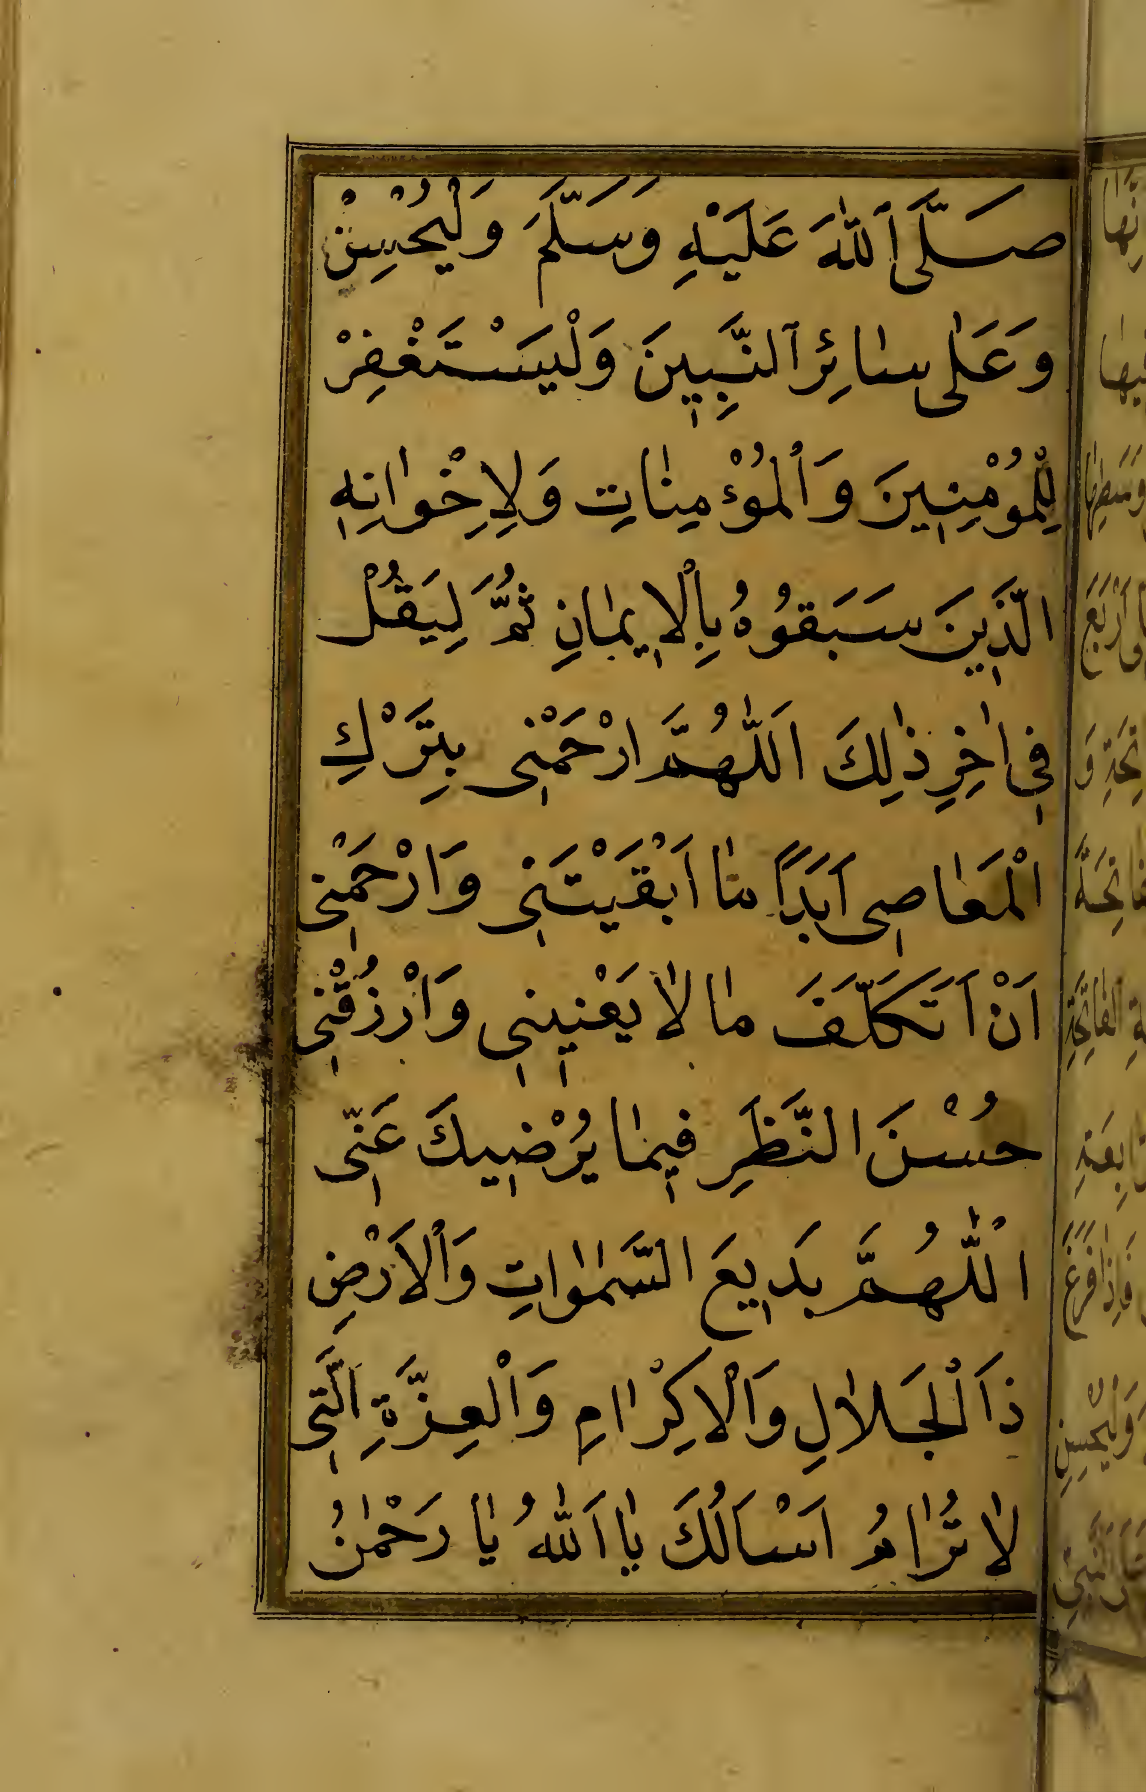 صَلَّى اللهُ عَلَيْهِ وَسَلَّمَ وَلْيُحْسِنْ
وَعَلٰى سٰائِرِ النَّبِيِّينَ وَلْيَسْتَغْفِرْ
لِلْمُؤْمِنِينَ وَالْمُؤْمِنٰاتِ وَلِاِخْوٰانِهِ
الَّذِينَ سَبَقُوهُ بِالْاِيمٰانِ ثُمَّ لِيَقُلْ
فِى اٰخِرِ ذٰلِكَ اَللّٰهُمَّ ارْحَمْنِى بِتَرْكِ
الْمَعٰاصِى اَبَدًا مٰا اَبْقَيْتَنِى وَارْحَمْنِى
اَنْ اَتَكَلَّفَ مٰا لٰا يَعْنِينِى وَارْزُقْنِى
حُسْنَ النَّظَرِ فِيمٰا يُرْضِيكَ عَنِّى
اَللّٰهُمَّ بَدِيعَ السَّمٰوٰاتِ وَالْاَرْضِ
ذَا الْجَلٰالِ وَالْاِكْرٰامِ وَالْعِزَّةِ الَّتِى
لٰا تُرٰامُ اَسْاَلُكَ يٰا اَللهُ يٰا رَحْمٰنُ